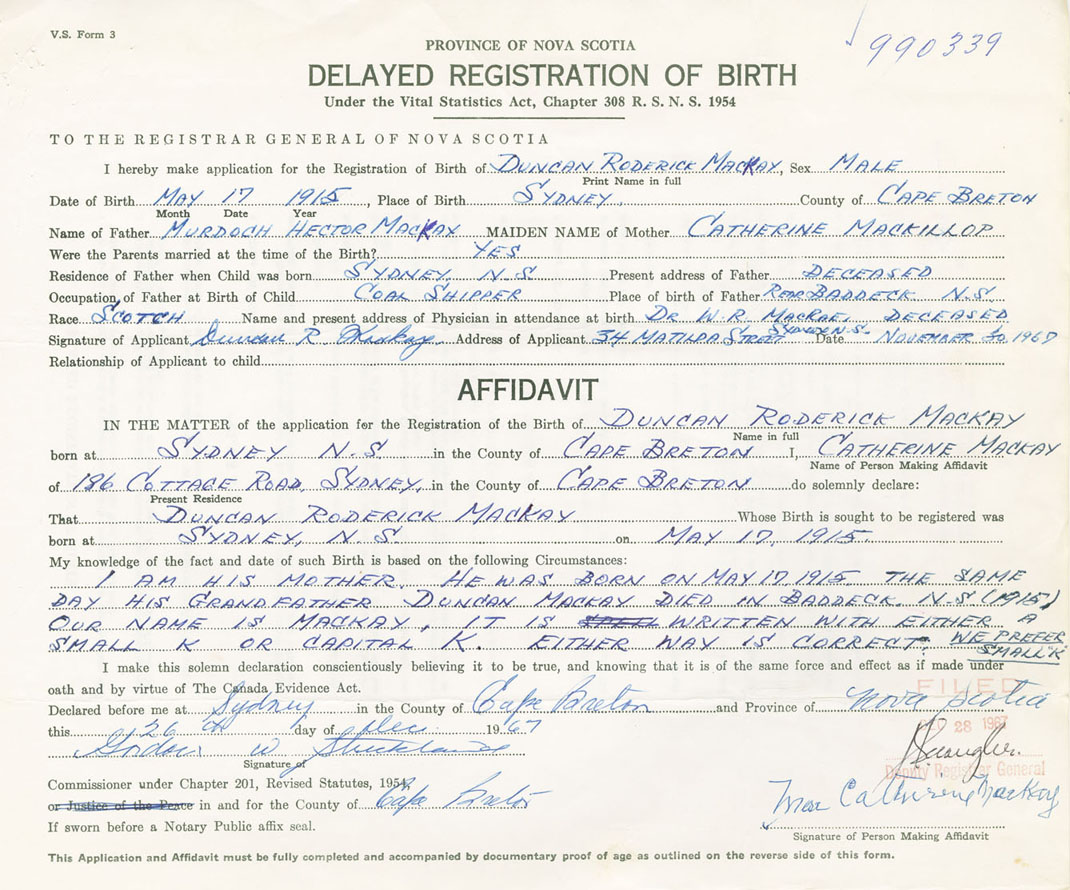 V.S. Form 3
990339
PROVINCE OF NOVA SCOTIA
DELAYED REGISTRATION OF BIRTH
Under the Vital Statistics Act, Chapter 308 R. S. N. S. 1954
TO THE REGISTRAR GENERAL OF NOVA SCOTIA
I hereby make application for the Registration of Birth of DUNCAN RODERICK MACKAY, Sex MALE
Print Name in full
Date of Birth MAY 17 1915, Place of Birth SYDNEY, County of CAPE BRETON
Month Date Year
Name of Father MURDOCH HECTOR MACKAY MAIDEN NAME of Mother CATHERINE MACKILLOP
Were the Parents married at the time of the Birth? YES
Residence of Father when Child was born SYDNEY, N.S. Present address of Father DECEASED
Occupation of Father at Birth of Child COAL SHIPPER Place of birth of Father REAR BADDECK N.S.
Race SCOTCH Name and present address of Physician in attendance at birth DR W.R. MACRAE, DECEASED
Signature of Applicant Duncan R Mackay Address of Applicant 34 MATILDA STREET SYDNEY N.S. Date NOVEMBER 20, 1967
Relationship of Applicant to child
AFFIDAVIT
IN THE MATTER of the application for the Registration of the Birth of DUNCAN RODERICK MACKAY
Name in full
born at SYDNEY N.S in the County of CAPE BRETON I, CATHERINE MACKAY
Name of Person Making Affidavit
of 186 COTTAGE ROAD, SYDNEY, in the County of CAPE BRETON do solemnly declare:
Present Residence
That DUNCAN RODERICK MACKAY Whose Birth is sought to be registered was
born at SYDNEY, N.S. on MAY 17, 1915.
My knowledge of the fact and date of such Birth is based on the following Circumstances:
I AM HIS MOTHER. HE WAS BORN ON MAY 17 1915 THE SAME
DAY HIS GRANDFATHER DUNCAN MACKAY DIED IN BADDECK, N.S (1915)
OUR NAME IS MACKAY, IT IS WRITTEN WITH EITHER A
SMALL K OR CAPITAL K. EITHER WAY IS CORRECT. WE PREFER
SMALL "K"
I make this solemn declaration conscientiously believing it to be true, and knowing that it is of the same force and effect as if made under
oath and by virtue of The Canada Evidence Act.
FILED
Declared before me at Sydney in the County of Cape Breton and Province of Nova Scotia
this 26 th day of Dec. 1967
28 1967
Gordon W Strickland
Signature of
Deputy Registrar General
Commissioner under Chapter 201, Revised Statutes, 1954,
or Justice of the Peace in and for the County of Cape Breton
Mrs Catherine Mackay
If sworn before a Notary Public affix seal.
Signature of Person Making Affidavit
This Application and Affidavit must be fully completed and accompanied by documentary proof of age as outlined on the reverse side of this form.